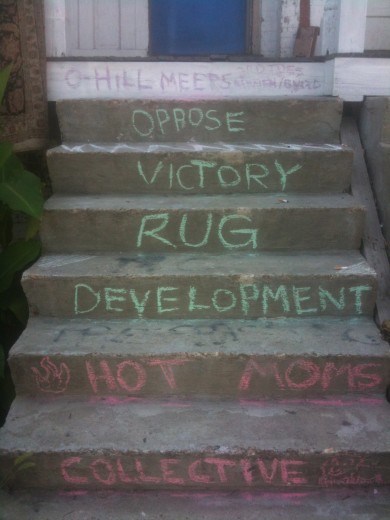 O-HILL MEETS
OPPOSE
VICTORY
RUG
DEVELOPMENT
HOT MOMS
COLLECTIVE